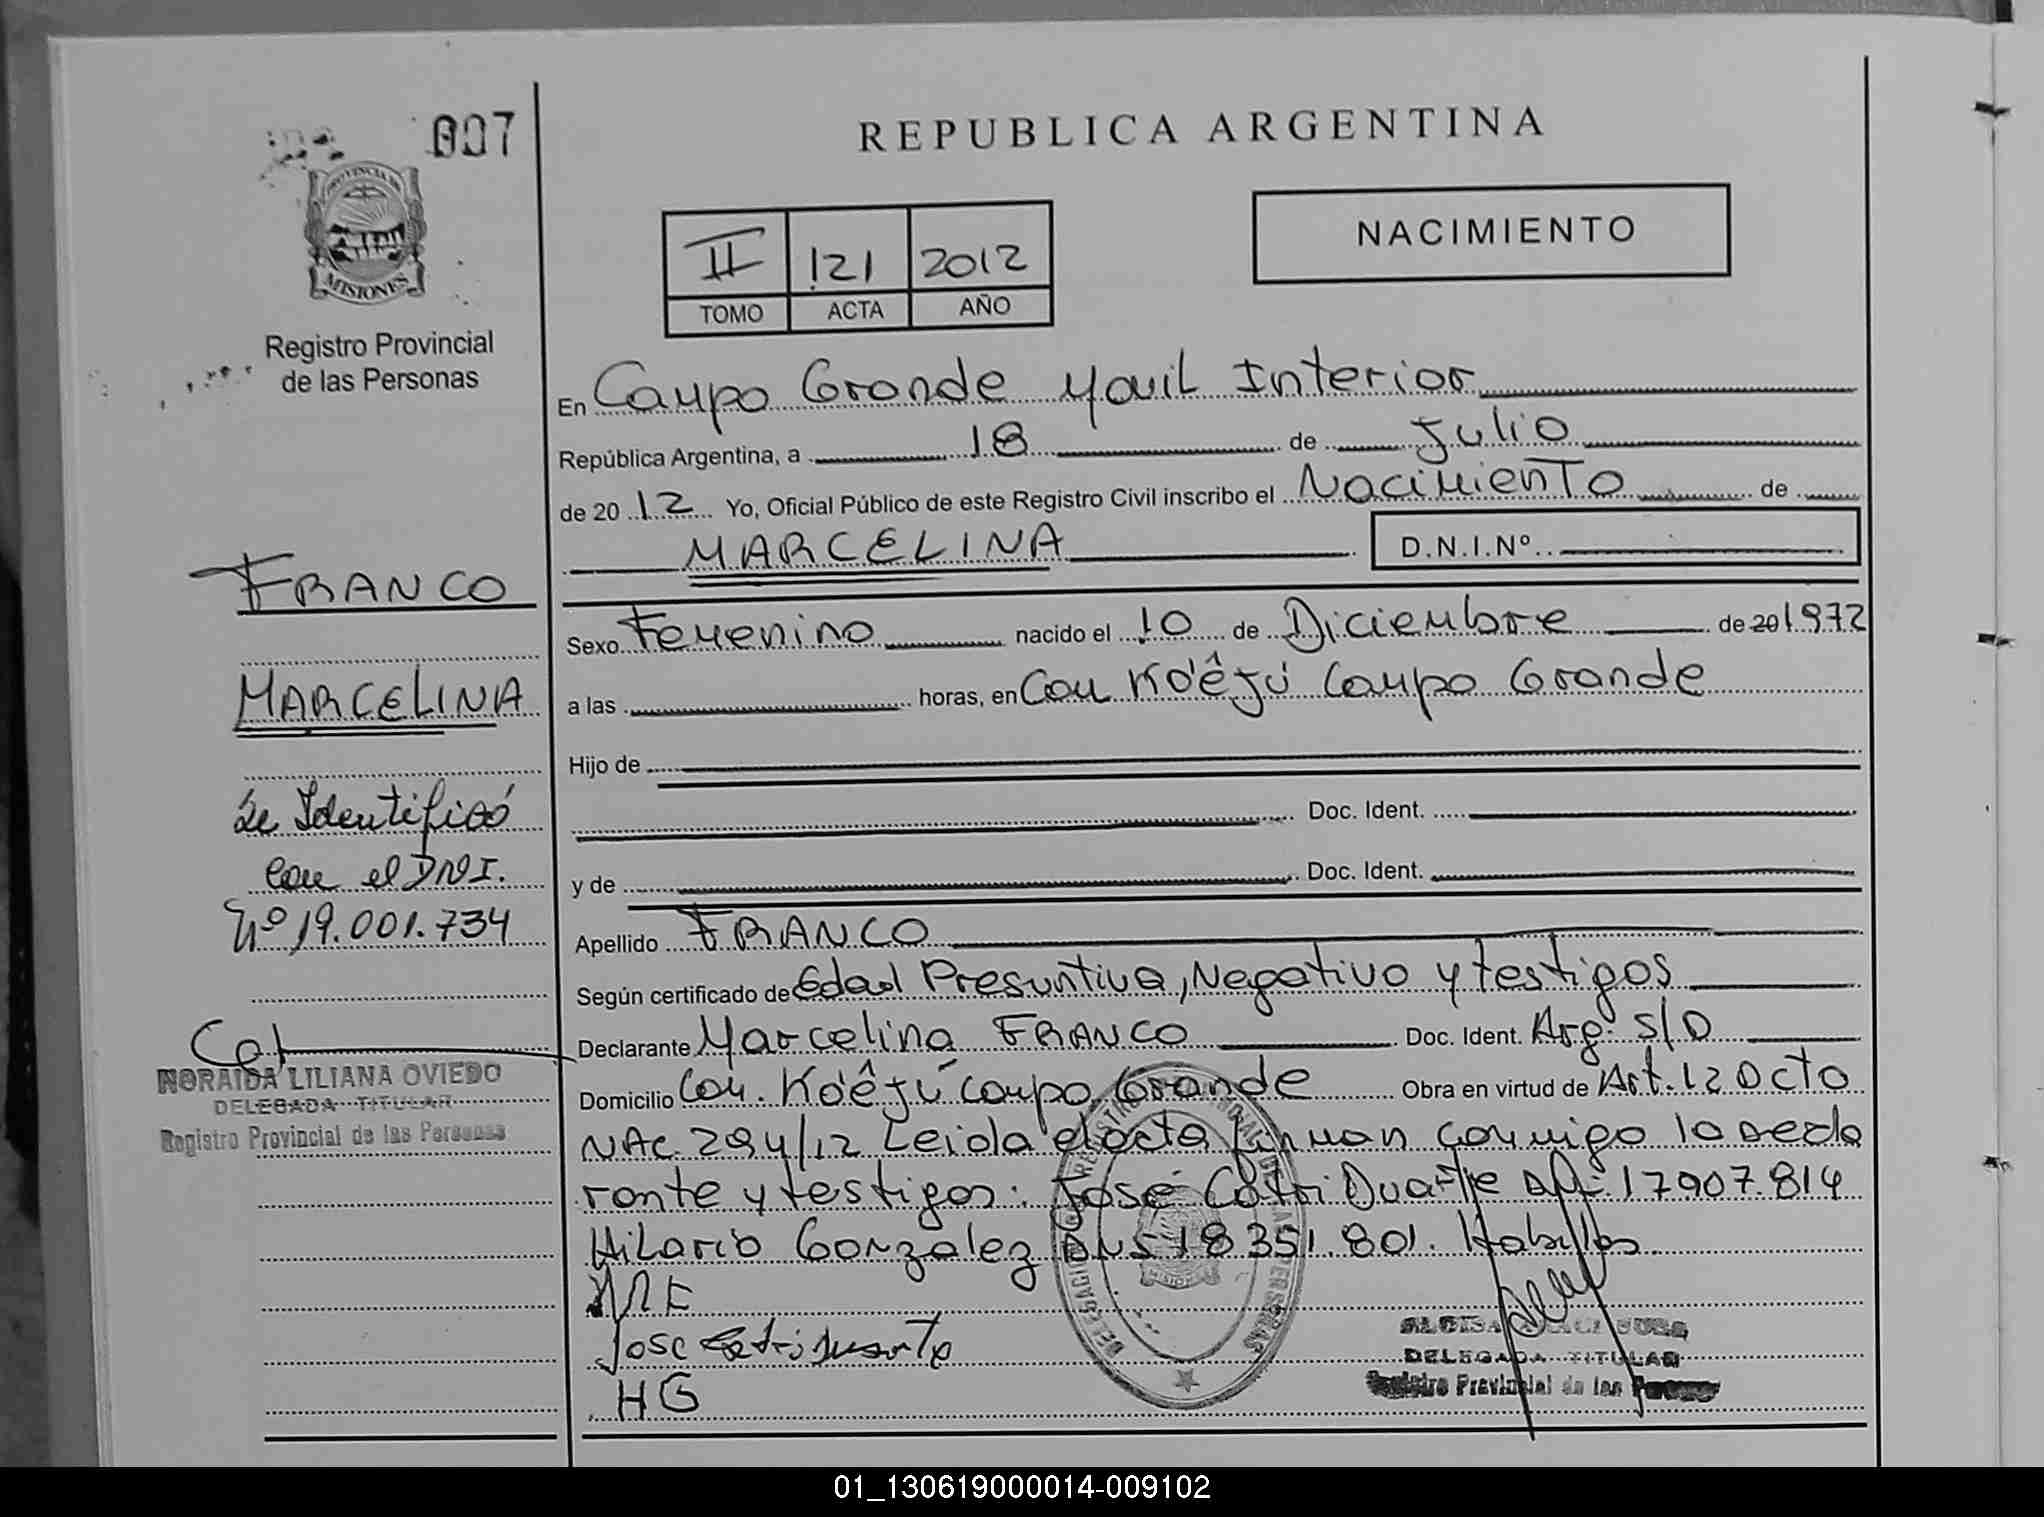 007
PROVINCIA DE
MISIONES
Registro Provincial
de las Personas
FRANCO
MARCELINA
Se Identificó
con el DNI.
Nº 19.001.734
NORAIDA LILIANA OVIEDO
DELEGADA TITULAR
Registro Provincial de las Personas
REPUBLICA ARGENTINA
NACIMIENTO
II 121 2012
TOMO ACTA AÑO
En Campo Grande Movil Interior
República Argentina, a 18 de Julio
de 2012 Yo, Oficial Público de este Registro Civil inscribo el Nacimiento de
MARCELINA D.N.I.Nº
Sexo Femenino nacido el 10 de Diciembre de 20 1972
a las horas, en Com Ko'êjú Campo Grande
Hijo de
Doc. Ident.
y de Doc. Ident.
Apellido FRANCO
Según certificado de Edad Presuntiva, Negativo y testigos
Declarante Marcelina FRANCO Doc. Ident. Arg. S/D
Domicilio Com. Ko'êjú Campo Grande Obra en virtud de Art. 12 Dcto
NAC. 294/12 Leida el acta firman conmigo la decla
rante y testigos: José Catri Duarte DNI 17907.814
Hilario Gonzalez DNI 18351.801. Habiles
José Catri Duarte
HG
DELEGADA TITULAR
Registro Provincial de las Personas
01_130619000014-009102